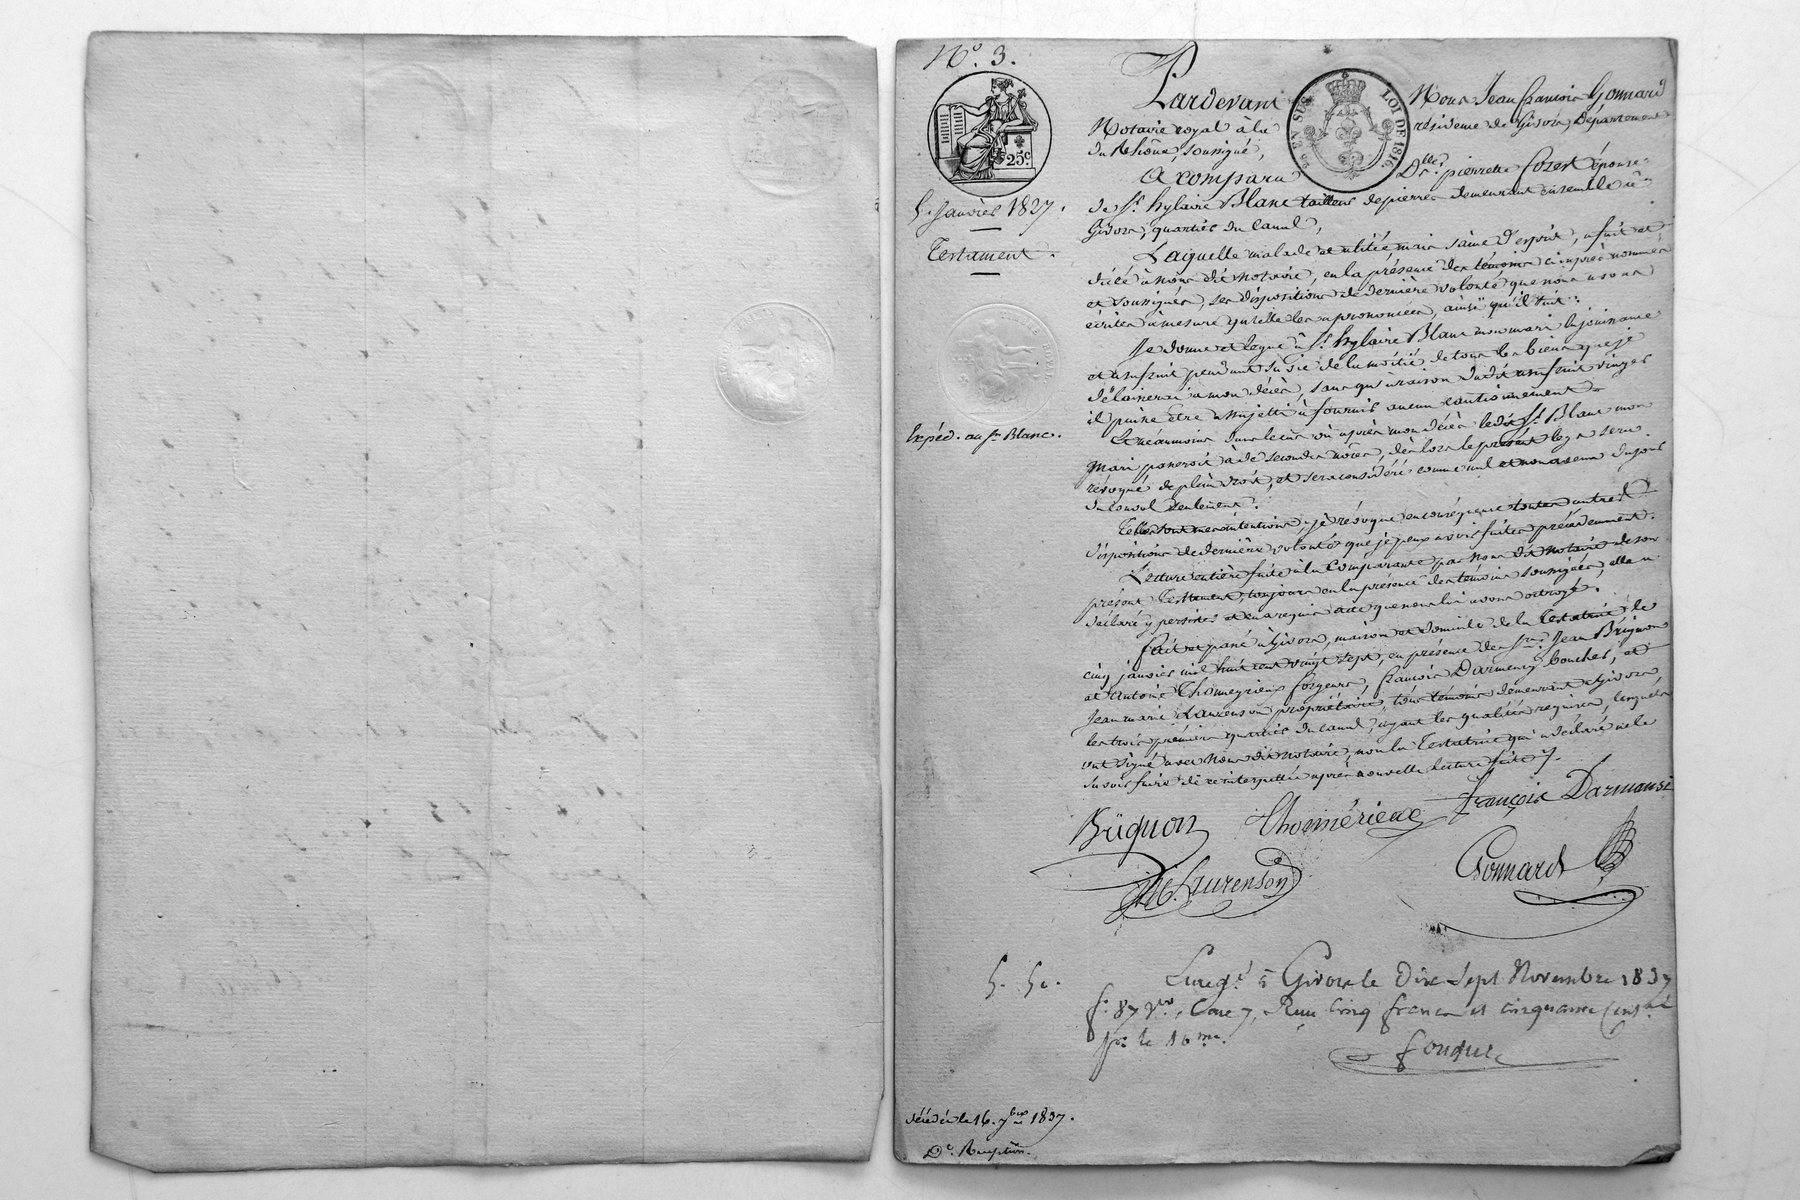 N.º 3.
25c
5. Janvier 1827.
Testament.
Expéd. au Sr. Blanc.
EN SUS
LOI DE 1816.
Pardevant Nous Jean françois Gonnard
Notaire royal à la résidence de Givors, Département
du Rhône, soussigné,
A comparu Dlle. pierrette fozest épouse
de Sr. hylaire Blanc tailleur de pierres demeurant ensemble à
Givors, quartier du Canal,
Laquelle malade et alitée mais saine d'esprit, a fait et
dicté à nous dit notaire, en la présence des témoins ci après nommés
et soussignés, ses dispositions de dernière volonté que nous avons
écrites à mesure qu'elle les a prononcées, ainsi qu'il suit:
Je donne et legue à Sr. hylaire Blanc mon mari la jouissance
et usufruit pendant sa vie de la moitié de tous les biens que je
délaisserai à mon décès, sans qu'à raison dudit usufruit
il puisse être assujetti à fournir aucun cautionnement.
Et néanmoins dans le cas où après mon décès ledit Sr. Blanc mon
mari passeroit à de secondes nôces, dès lors le présent legs sera
révoqué de plein droit, et sera considéré comme nul et non avenu du jour
du convol seulement.
Telles sont mes intentions, je révoque en conséquence toutes autres
dispositions de dernière volonté que je peux avoir faites précédemment.
Lecture entière faite à la Comparante par nous dit notaire de son
présent Testament, toujours en la présence des témoins soussignés, elle a
déclaré y persister et en a requis acte que nous lui avons octroyé.
fait et passé à Givors, maison et domicile de la Testatrice, le
cinq janvier mil huit cent vingt sept, en présence de Srs. Jean Brignon
et antoine Thomeyrieux forgeurs, françois Darmency boucher, et
Jean marie Laurenson propriétaire, tous témoins demeurant à Givors,
les trois premiers quartier du canal, ayant les qualités requises, lesquels
ont signé avec nous dit notaire, non la Testatrice qui a déclaré ne le
savoir faire de ce interpellée après nouvelle lecture faite.
Brignon Thomérieux françois Darmansi
JM Laurenson Gonnard
5. 50.
Enregé. à Givors le Dix Sept Novembre 1837
fo. 87 Vo., Case 7, Reçu Cinq francs et cinquante Cens
pr. le 10me.
fouque
décédée le 16. 7bre 1837.